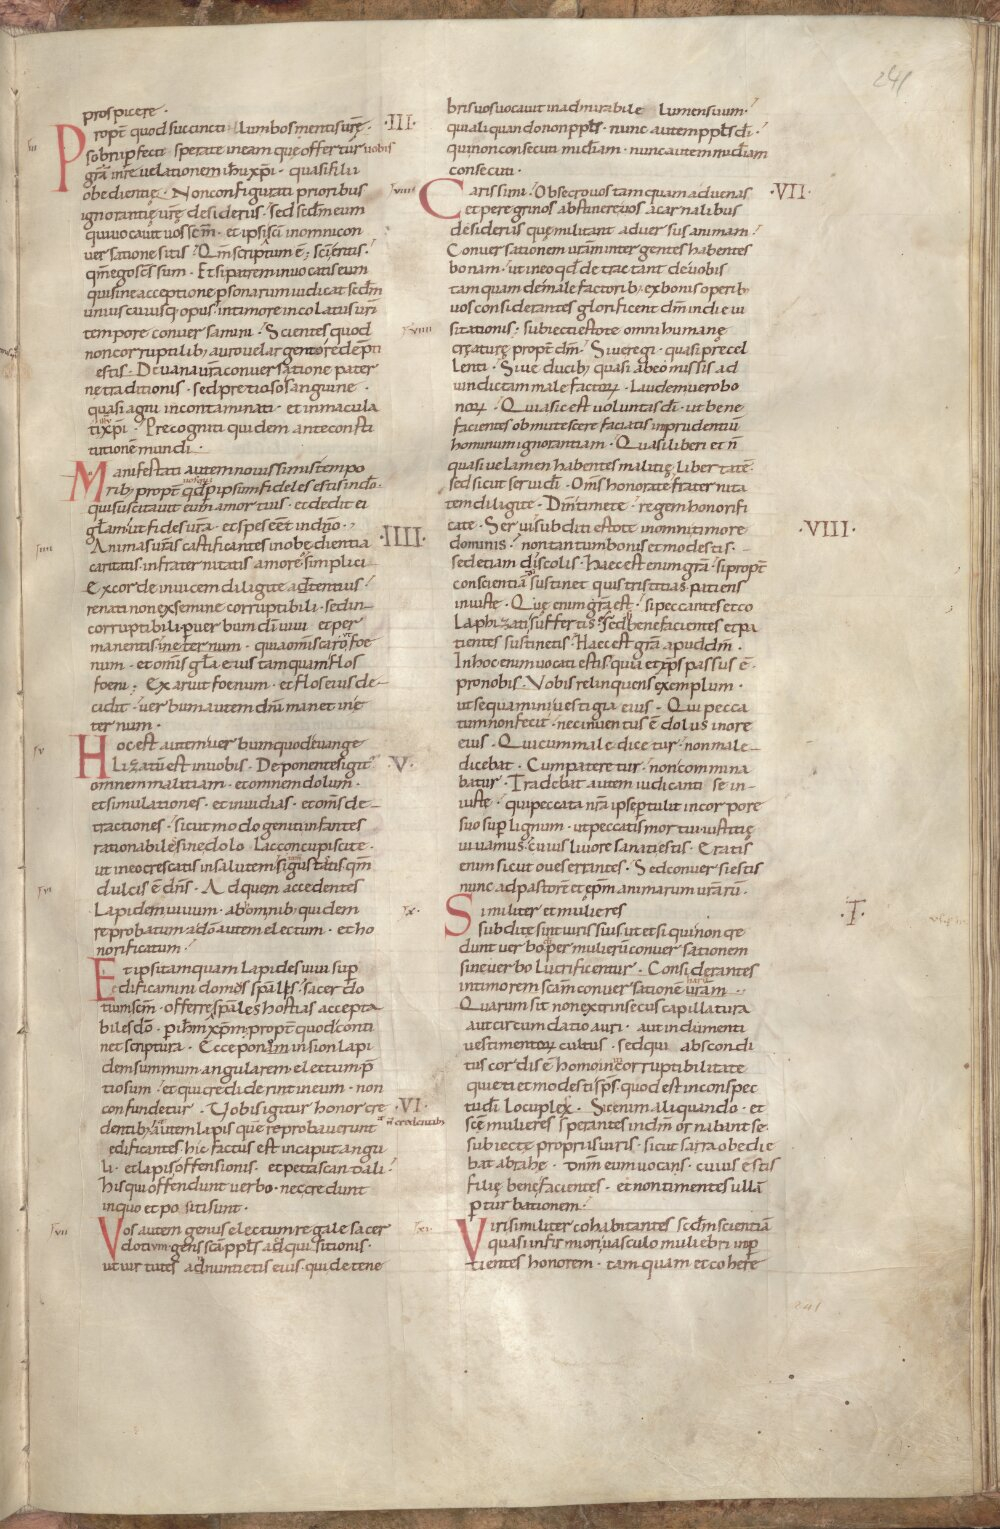 241
prospicere ·
Propt̄ quod succincti lumbos mentis urę̄ · ·III·
sobrii ꝑfecti sperate in eam que offertur uobis
gr̄am in reuelationem ihū xp̄i · quasi filii
obedientię · Non configurati prioribus
ignorantię urę desideriis · sed sc̄dm eum
qui uocauit uos sc̄m · et ipsi sc̄i in omni con
uersatione sitis · Qm̄ scriptum ē ; sc̄i eritis ·
qm̄ ego sc̄s sum · Et si patrem inuocatis eum
qui sine acceptione ꝑsonarum iudicat sc̄dm
unius cuiusq; opus · in timore incolatus ur̄i
tempore conuersamini · Scientes quod
non corruptilib; auro uel argento redēpti
estis · De uana ur̄a conuersatione pater
ne traditionis · sed pretioso sanguine ·
quasi agni incontaminati · et inmacula
ti xp̄i · Precogniti quidem ante consti
tutionē mundi ·
Manifestati autem nouissimis tempo
rib; propt̄ uos qui ꝑ ipsum fideles estis in dō ·
qui suscitauit eum a mortuis · et dedit ei
gl̄am ut fides ur̄a · et spes eēt in dn̄o ·
Animas ur̄as castificantes in obędientia ·IIII·
caritatis in fraternitatis amore simplici
Ex corde inuicem diligite adtentius ·
renati non ex semine corruptibili · sed in
corruptibili ꝑ uerbum dī uiui et per
manentis in eternum · quia om̄is caro foe
num · et om̄is gl̄a eius tamquam flos
foeni ; Exaruit foenum · et flos eius de
cidit · uerbum autem dn̄i manet in e
ternum ·
Hoc est autem uerbum quod euange
lizatū est in uobis · Deponentes igit ·V·
omnem malitiam · et omnem dolum ·
et simulationes · et inuidias · et om̄s de
tractiones · sicut modo geniti infantes
rationabile sine dolo lac concupiscite ·
ut in eo crescatis in salutem si gustatis qm̄
dulcis ē dn̄s · Ad quem accedentes
lapidem uiuum · ab omnib; quidem
reprobatum a dō autem electum · et ho
norificatum ·
Et ipsi tamquam lapides uiui suꝑ
edificamini domos sp̄ales · sacerdo
tium sc̄m · offerre sp̄ales hostias accepta
biles dō · ꝑ ihm̄ xp̄m propt̄ quod conti
net scriptura · Ecce pono in sion lapi
dem summum angularem electum p̄
tiosum · et qui crediderint in eum · non
confundetur · Uobis igitur honor cre ·VI·
dentib; autem lapis quem reprobauerunt
edificantes hic factus est in caput angu
li · et lapis offensionis · et petra scandali ·
his qui offendunt uerbo · nec credunt
in quo et positi sunt ·
Vos autem genus electum regale sacer
dotium gens sc̄a ppl̄s adquisitionis ·
ut uirtutes adnuntietis eius · qui de tene
bris uos uocauit in admirabile lumen suum ·
qui aliquando non ppl̄s · nunc autem ppl̄s dī ·
qui non consecuti mīcdiam · nunc autem mīcdiam
consecuti ·
Carissimi · Obsecro uos tamquam aduenas ·VII·
et peregrinos abstinere uos a carnalibus
desideriis quę militant aduersus animam ·
Conuersationem ur̄am inter gentes habentes
bonam · ut in eo qd̄ detractant de uobis
tamquam de malefactorib; ex bonis operib;
uos considerantes glorificent dm̄ in die ui
sitationis ; subiecti estote omni humanę
creaturę propt̄ dm̄ · Siue regi · quasi precel
lenti · Siue ducib; quasi ab eo missis ad
uindictam malefactoꝝ · Laudem uero bo
noꝝ · Quia sic est uoluntas dī · ut bene
facientes obmutescere faciatis inprudentiū
hominum ignorantiam · Quasi liberi et n̄
quasi uelamen habentes malitię libertatē ·
sed sicut serui dī · Om̄s honorate fraternita
tem diligite · Dm̄ timete · regem honorifi
cate · Serui subditi estote in omni timore ·VIII·
dominis · non tantum bonis et modestis ·
sed etiam discolis · Haec est enim gr̄a · si propt̄
conscientiā sustinet quis tristitias patiens
iniuste · Quę enim gr̄a est · si peccantes et co
laphizati suffertis · Sed benefacientes et pa
tientes sustinetis · Haec est gr̄a apud dm̄ ·
In hoc enim uocati estis quia et xp̄s passus ē ·
pro nobis · Vobis relinquens exemplum ·
ut sequamini uestigia eius · Qui pecca
tum non fecit · nec inuentus ē dolus in ore
eius · Qui cum male dicetur · non male
dicebat · Cum pateretur · non commina
batur · Tradebat autem iudicanti se in
iuste · qui peccata nr̄a ipse ꝑtulit in corpore
suo suꝑ lignum · ut peccatis mortui iustitię
uiuamus · cuius liuore sanati estis · Eratis
enim sicut oues errantes · Sed conuersi estis
nunc ad pastorē et ep̄m animarum ur̄arū ·
Similiter et mulieres ·T·
subditę sint uiris suis ut et si qui non cre
dunt uerbo per mulierū conuersationem
sine uerbo lucrificentur · Considerantes
in timorem sc̄am conuersationē uram
Quarum sit non extrinsecus capillatura
aut circumdatio auri · aut indumenti
uestimentoꝝ cultus · sed qui absconditi
tus cordis ē homo in incorruptibilitate
quieti et modesti sp̄s · quod est in conspec
tu dī locuplex · Sic enim aliquando · et
sc̄ę mulieres sperantes in dm̄ ornabant se
subiectę propriis uiris · sicut sarra obedie
bat abrahę · dnm̄ eum uocans · cuius estis
filię benefacientes · et non timentes ullā
ꝑturbationem ·
Viri similiter cohabitantes sc̄dm scientiā
quasi infirmiori uasculo muliebri inꝑ
tientes honorem · tamquam et cohere
241